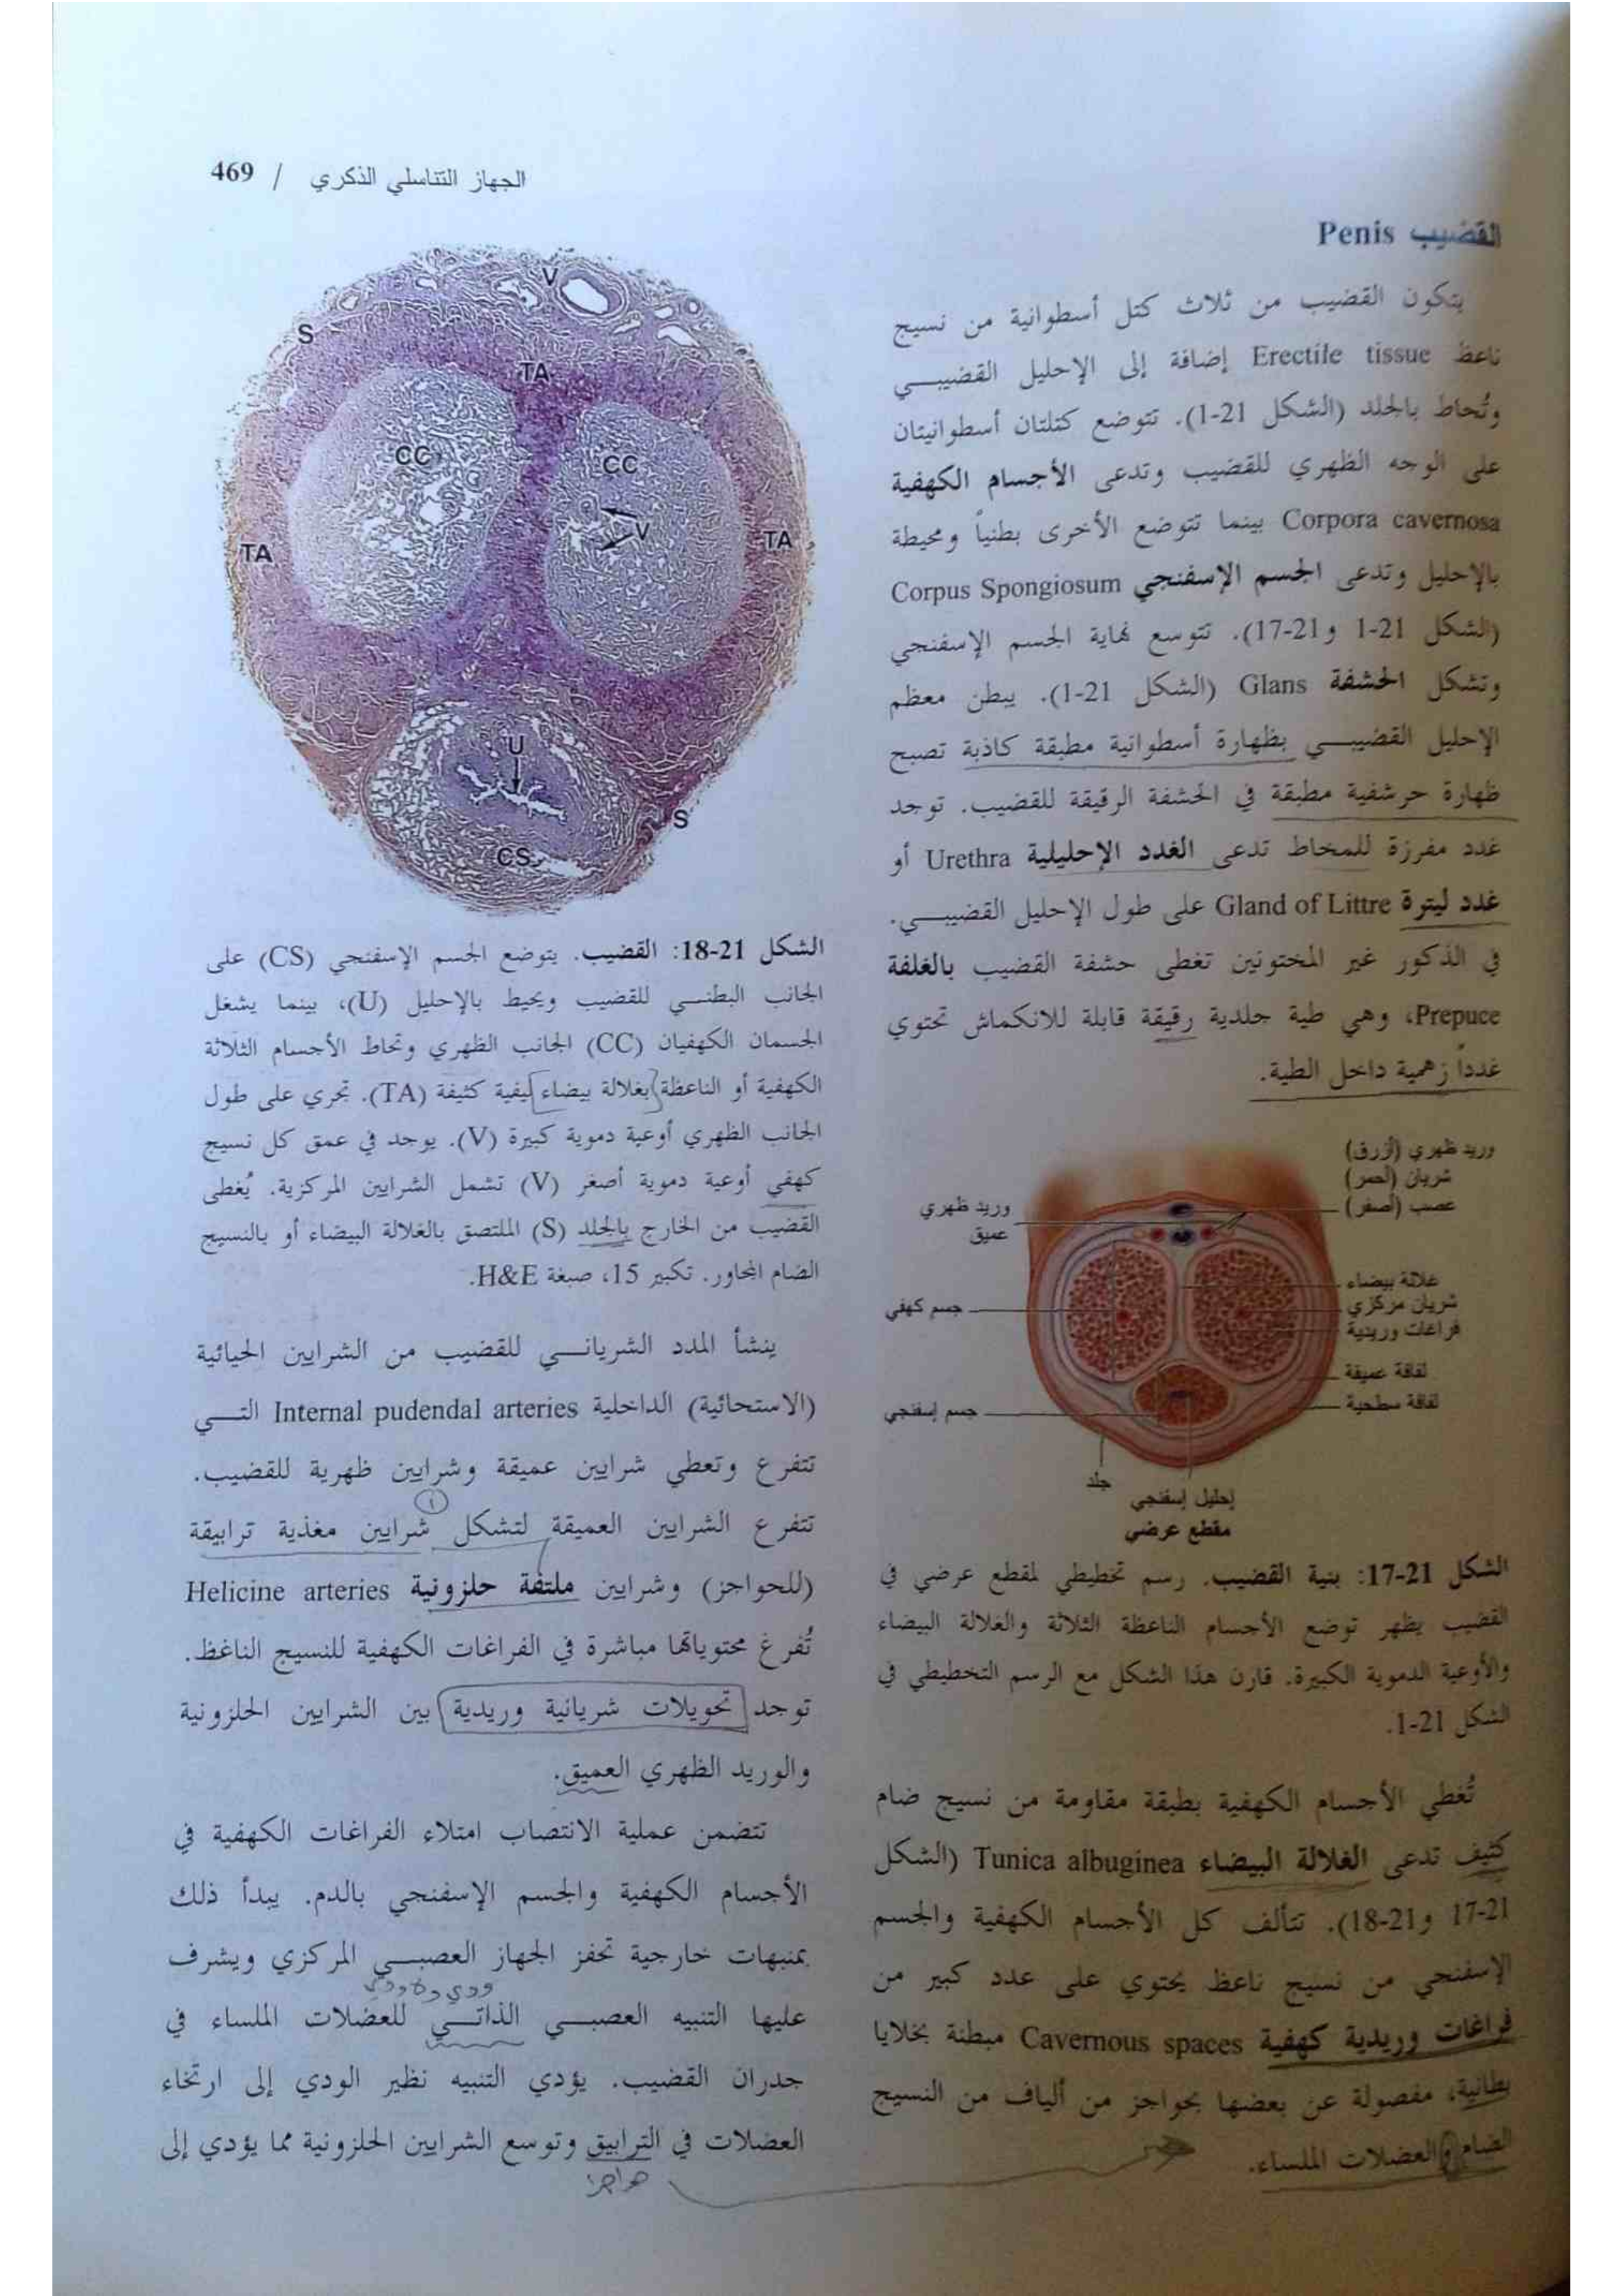 الجهاز التناسلي الذكري / 469
القضيب Penis
يتكون القضيب من ثلاث كتل أسطوانية من نسيج
ناعظ Erectile tissue إضافة إلى الإحليل القضيبي
وتُحاط بالجلد (الشكل 21-1). تتوضع كتلتان أسطوانيتان
على الوجه الظهري للقضيب وتدعى الأجسام الكهفية
Corpora cavernosa بينما تتوضع الأخرى بطنياً ومحيطة
بالإحليل وتدعى الجسم الإسفنجي Corpus Spongiosum
(الشكل 21-1 و21-17). تتوسع نهاية الجسم الإسفنجي
وتشكل الحشفة Glans (الشكل 21-1). يبطن معظم
الإحليل القضيبي بظهارة أسطوانية مطبقة كاذبة تصبح
ظهارة حرشفية مطبقة في الحشفة الرقيقة للقضيب. توجد
غدد مفرزة للمخاط تدعى الغدد الإحليلية Urethra أو
غدد ليترة Gland of Littre على طول الإحليل القضيبي.
في الذكور غير المختونين تغطى حشفة القضيب بالغلفة
Prepuce، وهي طية جلدية رقيقة قابلة للانكماش تحتوي
غدداً زهمية داخل الطية.
وريد ظهري (أزرق)
شريان (أحمر)
عصب (أصفر)
وريد ظهري
عميق
غلالة بيضاء
شريان مركزي
فراغات وريدية
جسم كهفي
لفافة عميقة
لفافة سطحية
جسم إسفنجي
جلد
إحليل إسفنجي
مقطع عرضي
الشكل 21-17: بنية القضيب. رسم تخطيطي لمقطع عرضي في
القضيب يظهر توضع الأجسام الناعظة الثلاثة والغلالة البيضاء
والأوعية الدموية الكبيرة. قارن هذا الشكل مع الرسم التخطيطي في
الشكل 21-1.
تُغطي الأجسام الكهفية بطبقة مقاومة من نسيج ضام
كثيف تدعى الغلالة البيضاء Tunica albuginea (الشكل
21-17 و21-18). تتألف كل الأجسام الكهفية والجسم
الإسفنجي من نسيج ناعظ يحتوي على عدد كبير من
فراغات وريدية كهفية Cavernous spaces مبطنة بخلايا
بطانية، مفصولة عن بعضها بحواجز من ألياف من النسيج
الضام والعضلات الملساء.
V
S
TA
CC
CC
V
TA
TA
U
S
CS
الشكل 21-18: القضيب. يتوضع الجسم الإسفنجي (CS) على
الجانب البطني للقضيب ويحيط بالإحليل (U)، بينما يشغل
الجسمان الكهفيان (CC) الجانب الظهري وتحاط الأجسام الثلاثة
الكهفية أو الناعظة بغلالة بيضاء ليفية كثيفة (TA). تجري على طول
الجانب الظهري أوعية دموية كبيرة (V). يوجد في عمق كل نسيج
كهفي أوعية دموية أصغر (V) تشمل الشرايين المركزية. يُغطى
القضيب من الخارج بالجلد (S) الملتصق بالغلالة البيضاء أو بالنسيج
الضام المجاور. تكبير 15، صبغة H&E.
ينشأ المدد الشرياني للقضيب من الشرايين الحيائية
(الاستحائية) الداخلية Internal pudendal arteries التي
تتفرع وتعطي شرايين عميقة وشرايين ظهرية للقضيب.
تتفرع الشرايين العميقة لتشكل شرايين مغذية ترابيقة
(للحواجز) وشرايين ملتفة حلزونية Helicine arteries
تُفرغ محتوياتها مباشرة في الفراغات الكهفية للنسيج الناغظ.
توجد تحويلات شريانية وريدية بين الشرايين الحلزونية
والوريد الظهري العميق.
تتضمن عملية الانتصاب امتلاء الفراغات الكهفية في
الأجسام الكهفية والجسم الإسفنجي بالدم. يبدأ ذلك
بمنبهات خارجية تحفز الجهاز العصبي المركزي ويشرف
عليها التنبيه العصبي الذاتي للعضلات الملساء في
جدران القضيب. يؤدي التنبيه نظير الودي إلى ارتخاء
العضلات في الترابيق وتوسع الشرايين الحلزونية مما يؤدي إلى
حواجز